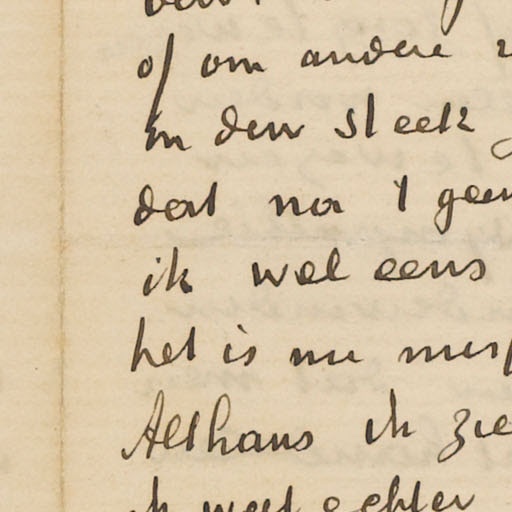 of om andere
in den steek
dat na 't geen
ik wel eens
het is nu
Althans ik zie
ik weet echter